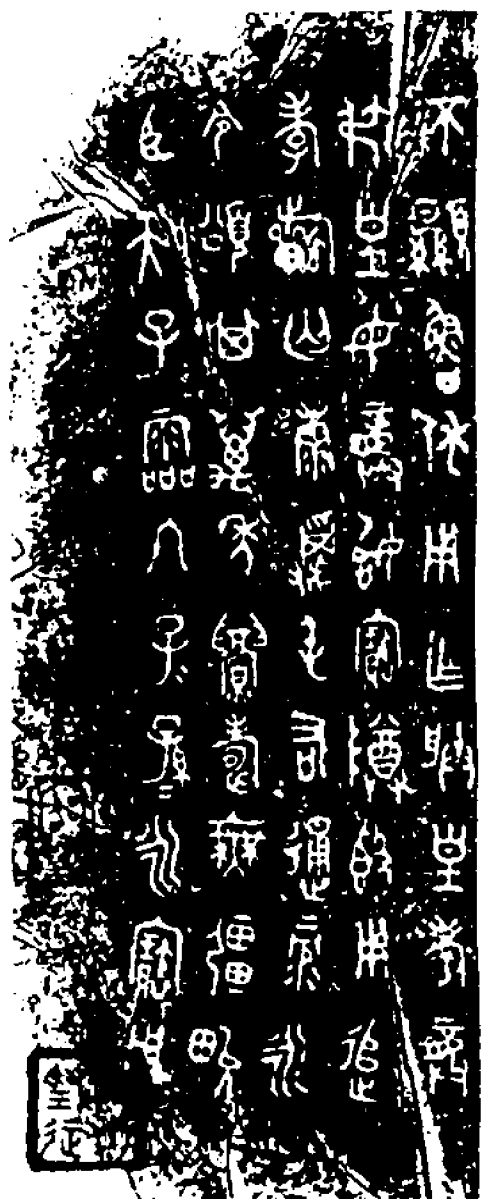 不顯魯休用乍朕皇考龏
弔皇母龏始寶尊簋用追
孝祈匄康屯右通彔永
令頌其萬年眉壽無疆畯
臣天子霝冬子=孫=永寶用